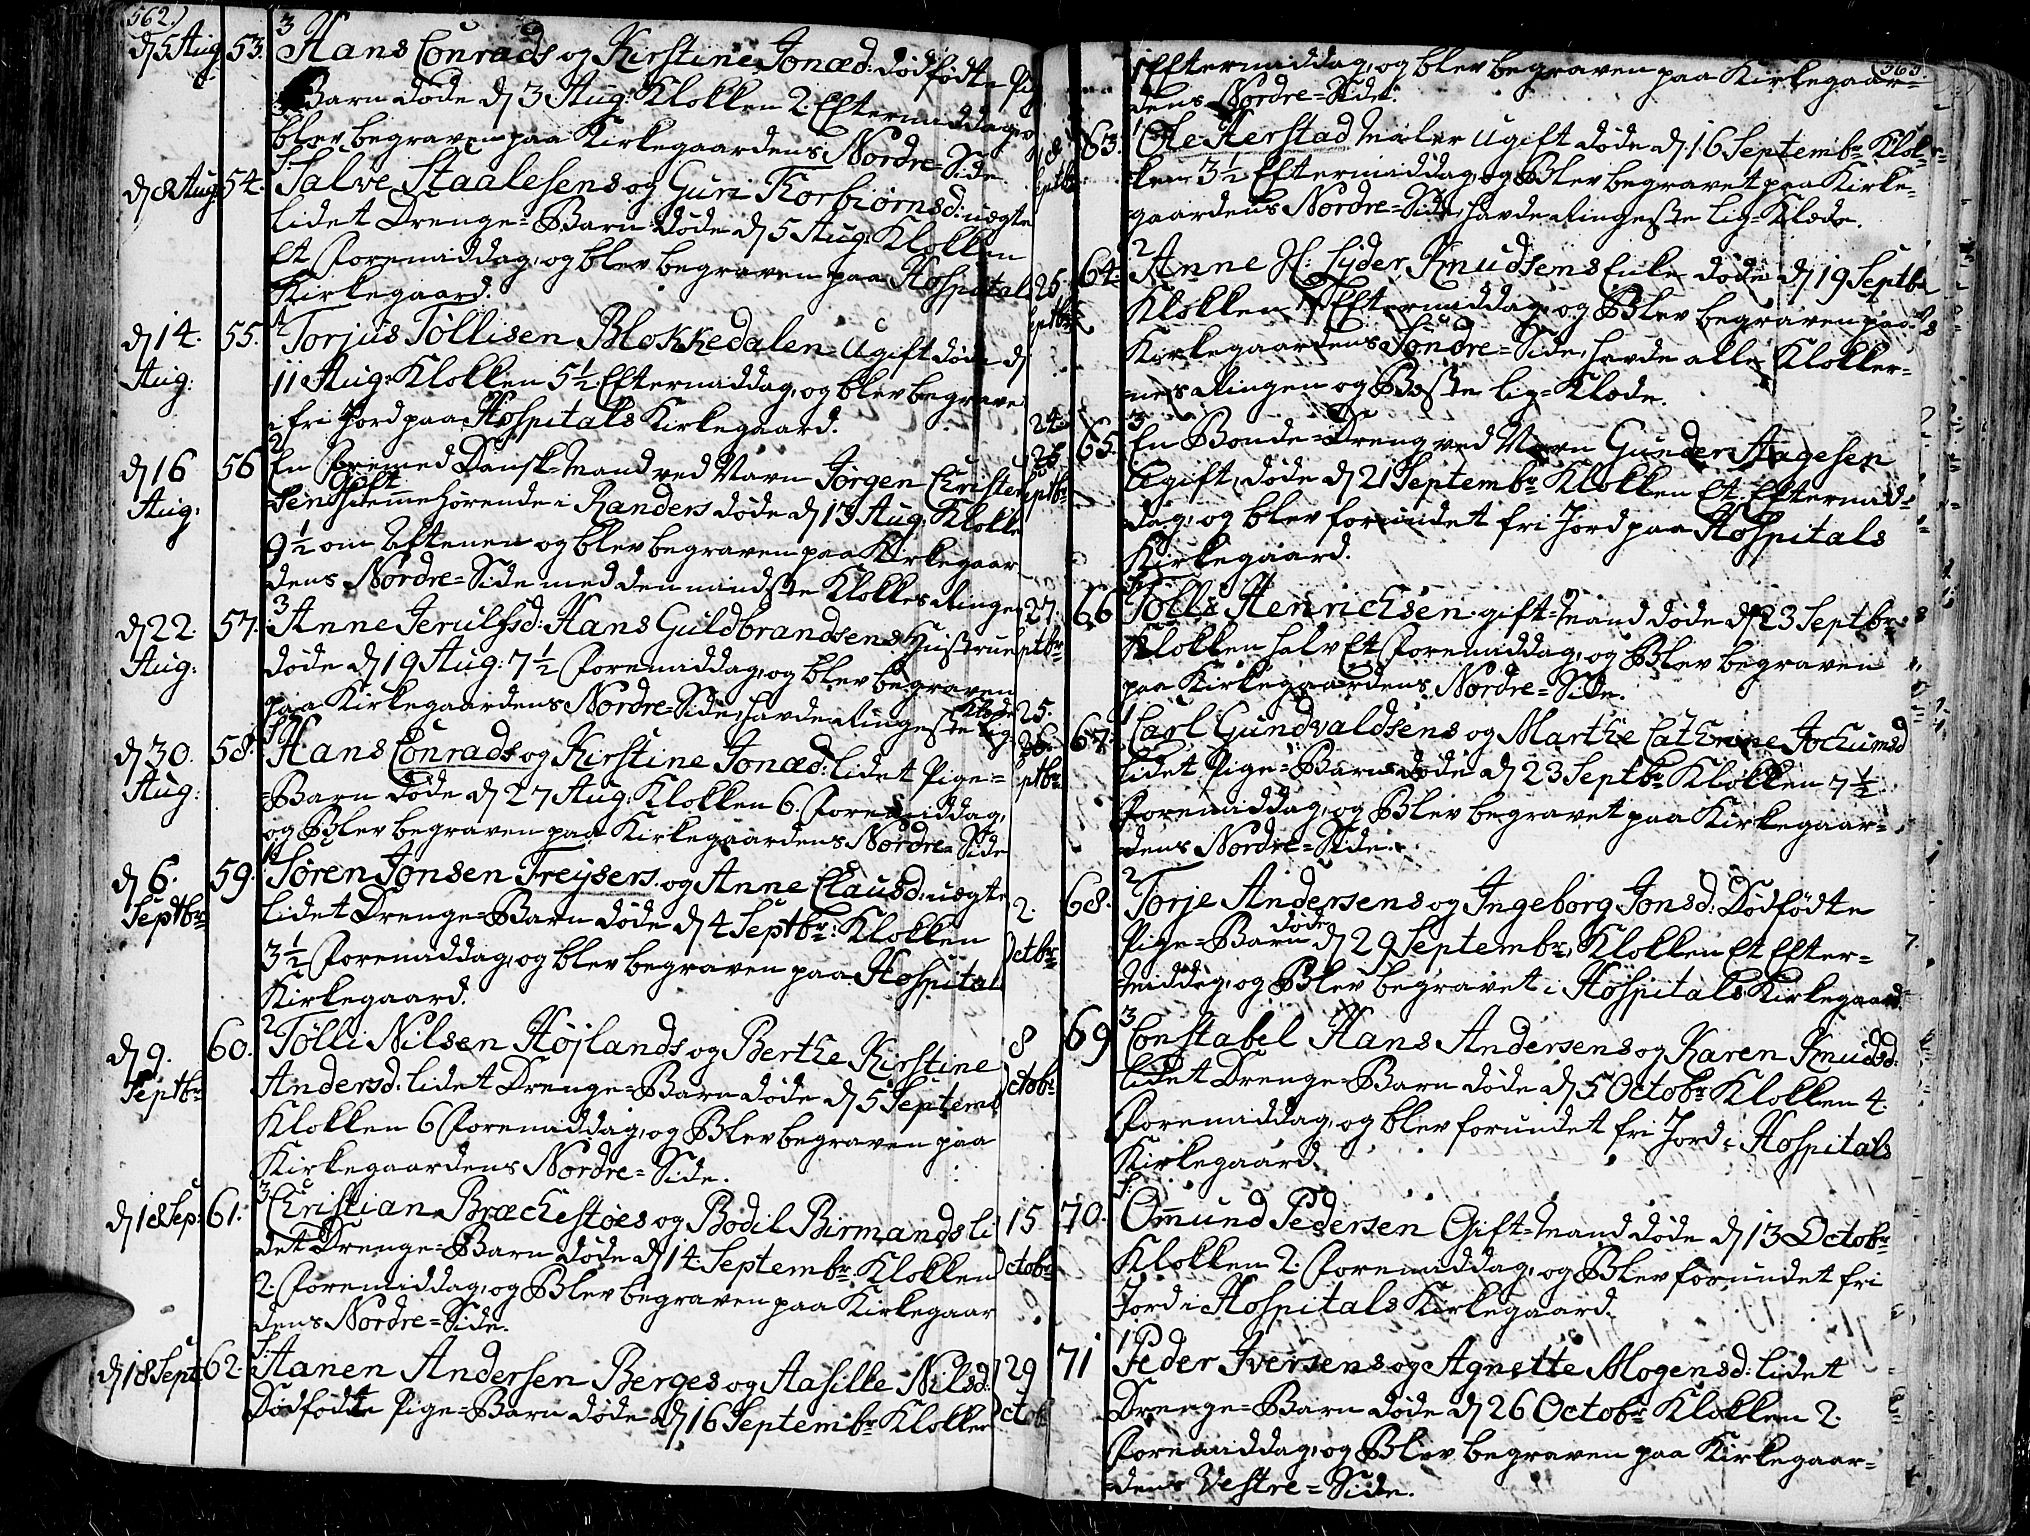 562.)
d 5 Aug 53. 3 Hans Conrads og Kirstine Jonæd: dødfødte Pig
Barn døde d 3 Aug: Klokken 2. Eftermiddag, o
blev begraven paa Kirkegaardens Nordre-Side
d 8 Aug: 54. Salve Staalesens og Guri Torbiørnsd: uægte
lidet Drenge-Barn døde d 5 Aug: Klokken
Et Formiddag, og blev begraven paa Hospital
Kirkegaard.
d 14. Aug: 55. Torjus Tøllisen Blokkedalen Ugift døde d
11 Aug: Klokken 5½ Eftermiddag, og blev begrave
i fri Jord paa Hospitals Kirkegaard.
d 16 Aug: 56 2 En fremed Dansk-Mand ved Navn Jørgen Christen
Gift
sen hiemmehørende i Randers døde d 13 Aug: Klokke
9½ om Aftenen og blev begraven paa Kirkegaar
dens Nordre-Side med den mindste Klokkes Ringe
d 22. Aug: 57. 3 Anne Jerulfsd: Hans Guldbrandsens Hustrue
døde d 19 Aug: 7½ Formiddag, og blev begraven
paa Kirkegaardens Nordre-Side, havde Ringeste Lig-
Klæde
d 30. Aug: 58. Hans Conrads og Kirstine Jonæd: lidet Pige-
-Barn døde d 27 Aug: Klokken 6. Formiddag,
og Blev begraven paa Kirkegaardens Nordre-Side
d 6. Septbr 59. 1 Søren Jonsen Treysers og Anne Clausd: uægte
lidet Drenge-Barn døde d 4 Septbr: Klokken
3½ Formiddag, og blev begraven paa Hospital
Kirkegaard.
d 9. Septbr 60. 2 Tølli Nilsen Højlands og Berthe Kirstine
Andersd: lidet Drenge-Barn døde d 5 Septemb
Klokken 6 Formiddag, og Blev begraven paa
Kirkegaardens Nordre-Side.
d 18 Sep: 61. 3 Christian Bræchestøes og Bodil Birmands li
det Drenge-Barn døde d 14 Septembr Klokken
2. Formiddag, og Blev begraven paa Kirkegaar
dens Nordre-Side.
d 18 Sept 62. Aanen Andersen Berges og Aasille Nilsd:
Dødfødte Pige-Barn døde d 16 Septembr Klokken
563.
1 Eftermiddag, og blev begraven paa Kirkegaar-
dens Nordre-Side.
18 Septbr 63. 1 Ole Herstad Maler Ugift døde d. 16 Septembr Klok-
ken 3½ Eftermiddag, og Blev begravet paa Kirke-
gaardens Nordre-Side, havde Ringeste Lig-Klæde.
25 Septbr 64. 2 Anne Sl: Lyder Knudsens Enke døde d 19 Septbr
Klokken Eftermiddag, og Blev begraven paa
Kirkegaardens Søndre-Side, havde alle Klokker-
nes Ringen og Beste Lig-Klæde.
25 Septbr 65. 3 En Bonde-Dreng ved Navn Gunder Aagesen
Ugift, døde d 21 Septembr Klokken Et Eftermid-
dag, og blev forundet fri Jord paa Hospitals
Kirkegaard.
27. Septbr 66 Tølli Henrichsen gift-Mand døde d 23 Septbr
Klokken halv Et Formiddag, og Blev begraven
paa Kirkegaardens Nordre-Side.
Septbr 67. 1 Carl Gundvaldsens og Marthe Cathrine Jochumsd
lidet Pige-Barn døde d 23 Septbr Klokken 7½
Formiddag, og Blev begravet paa Kirkegaar-
dens Nordre-Side.
2. Octbr 68. 2 Torje Andersens og Ingeborg Jonsd: Dødfødte
Pige-Barn døde d 29 Septembr Klokken Et Efter-
middag, og Blev begravet i Hospitals Kirkegaard.
8 Octobr 69 3 Constabel Hans Andersens og Karen Knudsd:
lidet Drenge-Barn døde d 5 Octobr Klokken 4.
Formiddag, og blev forundet fri Jord i Hospitals
Kirkegaard.
15 Octobr 70. Omund Pedersen Gift-Mand døde d 13 Octobr
Klokken 2. Formiddag, og Blev forundet fri
Jord i Hospitals Kirkegaard.
29 Octob 71 1 Peder Iversens og Agnette Mogensd: lidet
Drenge-Barn døde d 26 Octobr Klokken 2.
Formiddag, og Blev begraven paa Kirkegaar-
dens Vestre-Side.